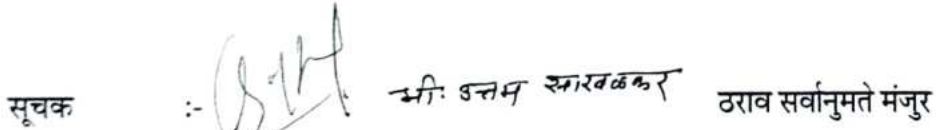 सूचक :- श्री. उत्तम साखळकर ठराव सर्वानुमते मंजुर